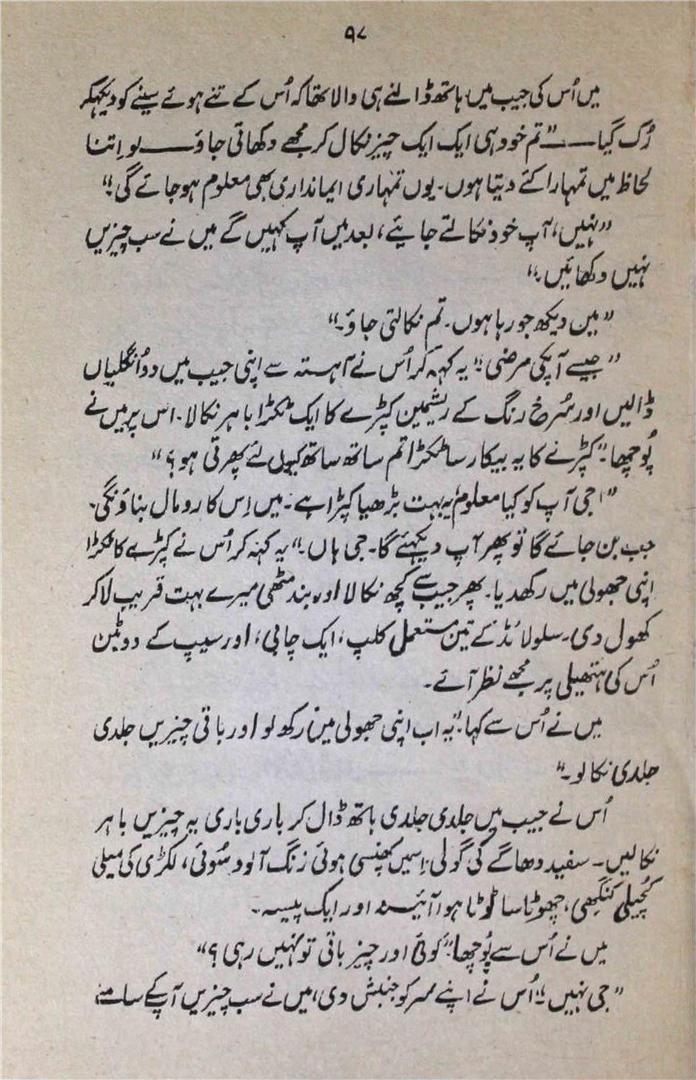 ۹۷
میں اُس کی جیب میں ہاتھ ڈالنے ہی والا تھا کہ اُس کے تنے ہوئے سینے کو دیکھکر
رُک گیا——"تم خود ہی ایک ایک چیز نکال کر مجھے دکھاتی جاؤ——لو اِتنا
لحاظ میں تمہارا کئے دیتا ہوں۔ یوں تمہاری ایمانداری بھی معلوم ہو جائے گی۔"
"نہیں، آپ خود نکالتے جایئے، بعد میں آپ کہیں گے میں نے سب چیزیں
نہیں دکھائیں۔"
"میں دیکھ جو رہا ہوں۔ تم نکالتی جاؤ۔"
"جیسے آپکی مرضی۔" یہ کہہ کر اُس نے آہستہ سے اپنی جیب میں دو اُنگلیاں
ڈالیں اور سُرخ رنگ کے ریشمین کپڑے کا ایک ٹکڑا باہر نکالا۔ اس پر میں نے
پُوچھا۔ "کپڑے کا یہ بیکار سا ٹکڑا تم ساتھ ساتھ کیوں لئے پھرتی ہو؟"
"اجی آپ کو کیا معلوم یہ بہت بڑھیا کپڑا ہے۔ میں اِس کا رومال بناؤنگی۔
جب بن جائے گا تو پھر آپ دیکھئے گا۔ جی ہاں۔" یہ کہہ کر اُس نے کپڑے کا ٹکڑا
اپنی جھولی میں رکھدیا۔ پھر جیب سے کچھ نکالا اور بند مٹھی میرے بہت قریب لا کر
کھول دی۔ سلولائڈ کے تین مستعمل کلپ، ایک چابی، اور سیپ کے دو بٹن
اُس کی ہتھیلی پر مجھے نظر آئے۔
میں نے اُس سے کہا۔ "یہ اب اپنی جھولی میں رکھ لو اور باقی چیزیں جلدی
جلدی نکالو۔"
اُس نے جیب میں جلدی جلدی ہاتھ ڈال کر باری باری یہ چیزیں باہر
نکالیں۔ سفید دھاگے کی گولی اِسمیں پھنسی ہوئی زنگ آلود سُوئی، لکڑی کی میلی
کُچیلی کنگھی، چھوٹا سا ٹُوٹا ہوا آئینہ اور ایک پیسہ۔
میں نے اُس سے پُوچھا۔ "کوئی اور چیز باقی تو نہیں رہی؟"
"جی نہیں۔" اُس نے اپنے سر کو جنبش دی، میں نے سب چیزیں آپکے سامنے